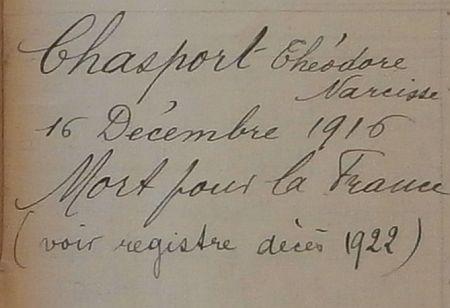 Chasport Théodore
Narcisse
16 Décembre 1916
Mort pour la France
(voir registre décès 1922)